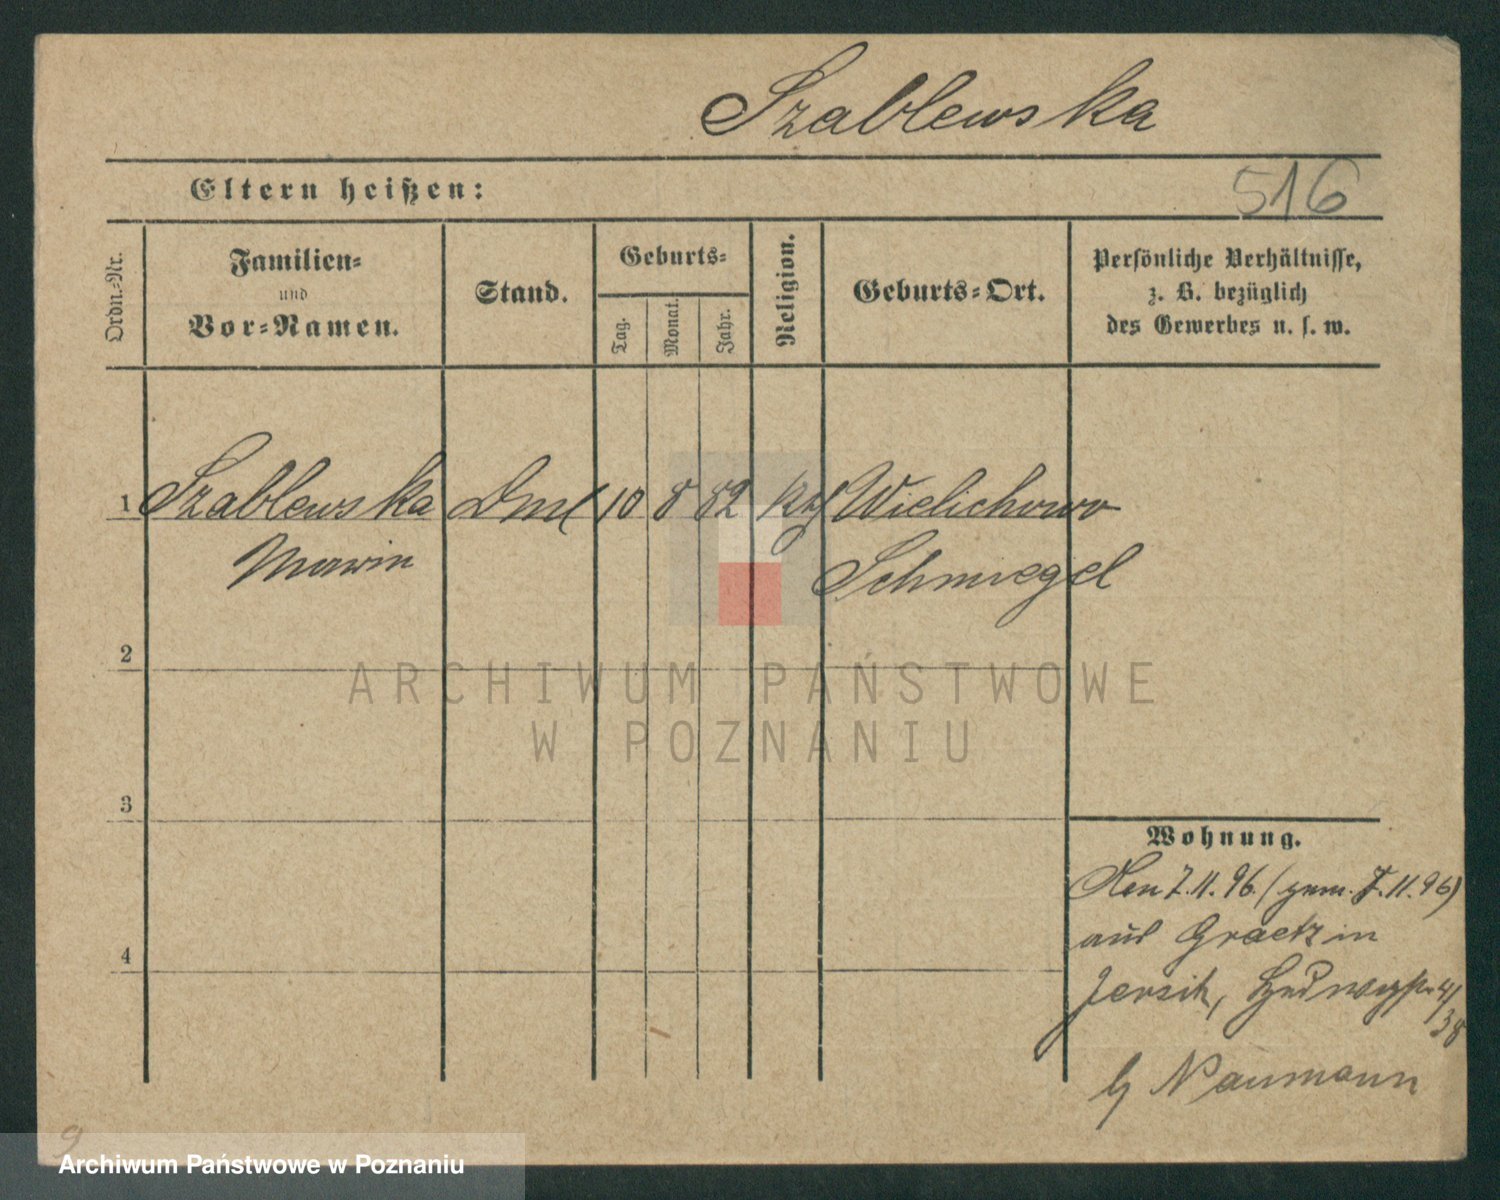 Szablewska
Eltern heißen:
516
Ordn.-Nr.
Familien-
und
Vor-Namen.
Stand.
Geburts-
Tag.
Monat.
Jahr.
Religion.
Geburts-Ort.
Persönliche Verhältnisse,
z. B. bezüglich
des Gewerbes u. s. w.
1 Szablewska Dml 10 8 82 kth Wielichowo
Marin Schmiegel
2
3
4
Wohnung.
Den 7.11.96 (gem. 7.11.96)
aus Graetz in
Jersitz, Hedwigstr 4/
38
b/ Naumann
9
ARCHIWUM PAŃSTWOWE
W POZNANIU
Archiwum Państwowe w Poznaniu